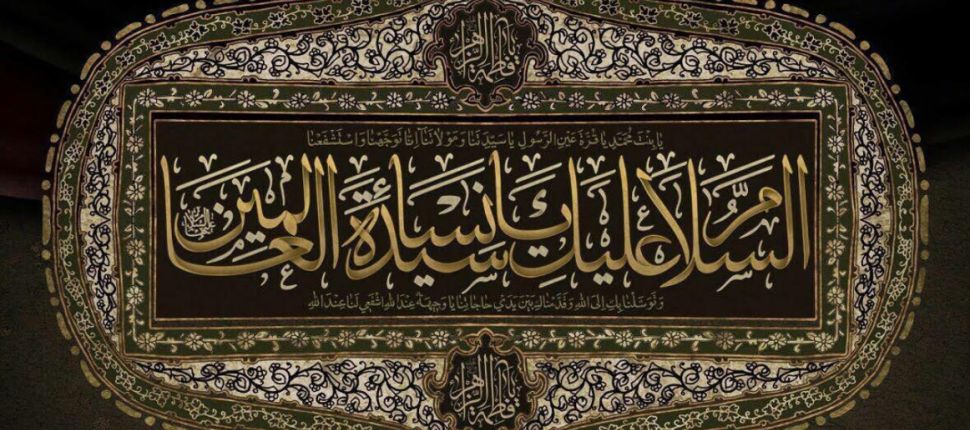 يا فاطمة الزهراء
يا بنت محمد يا قرة عين الرسول يا سيدتنا ومولاتنا انا توجهنا واستشفعنا
السلام عليك يا سيدة نساء العالمين
وتوسلنا بك الى الله وقدمناك بين يدي حاجاتنا يا وجيهة عند الله اشفعي لنا عند الله
يا فاطمة الزهراء